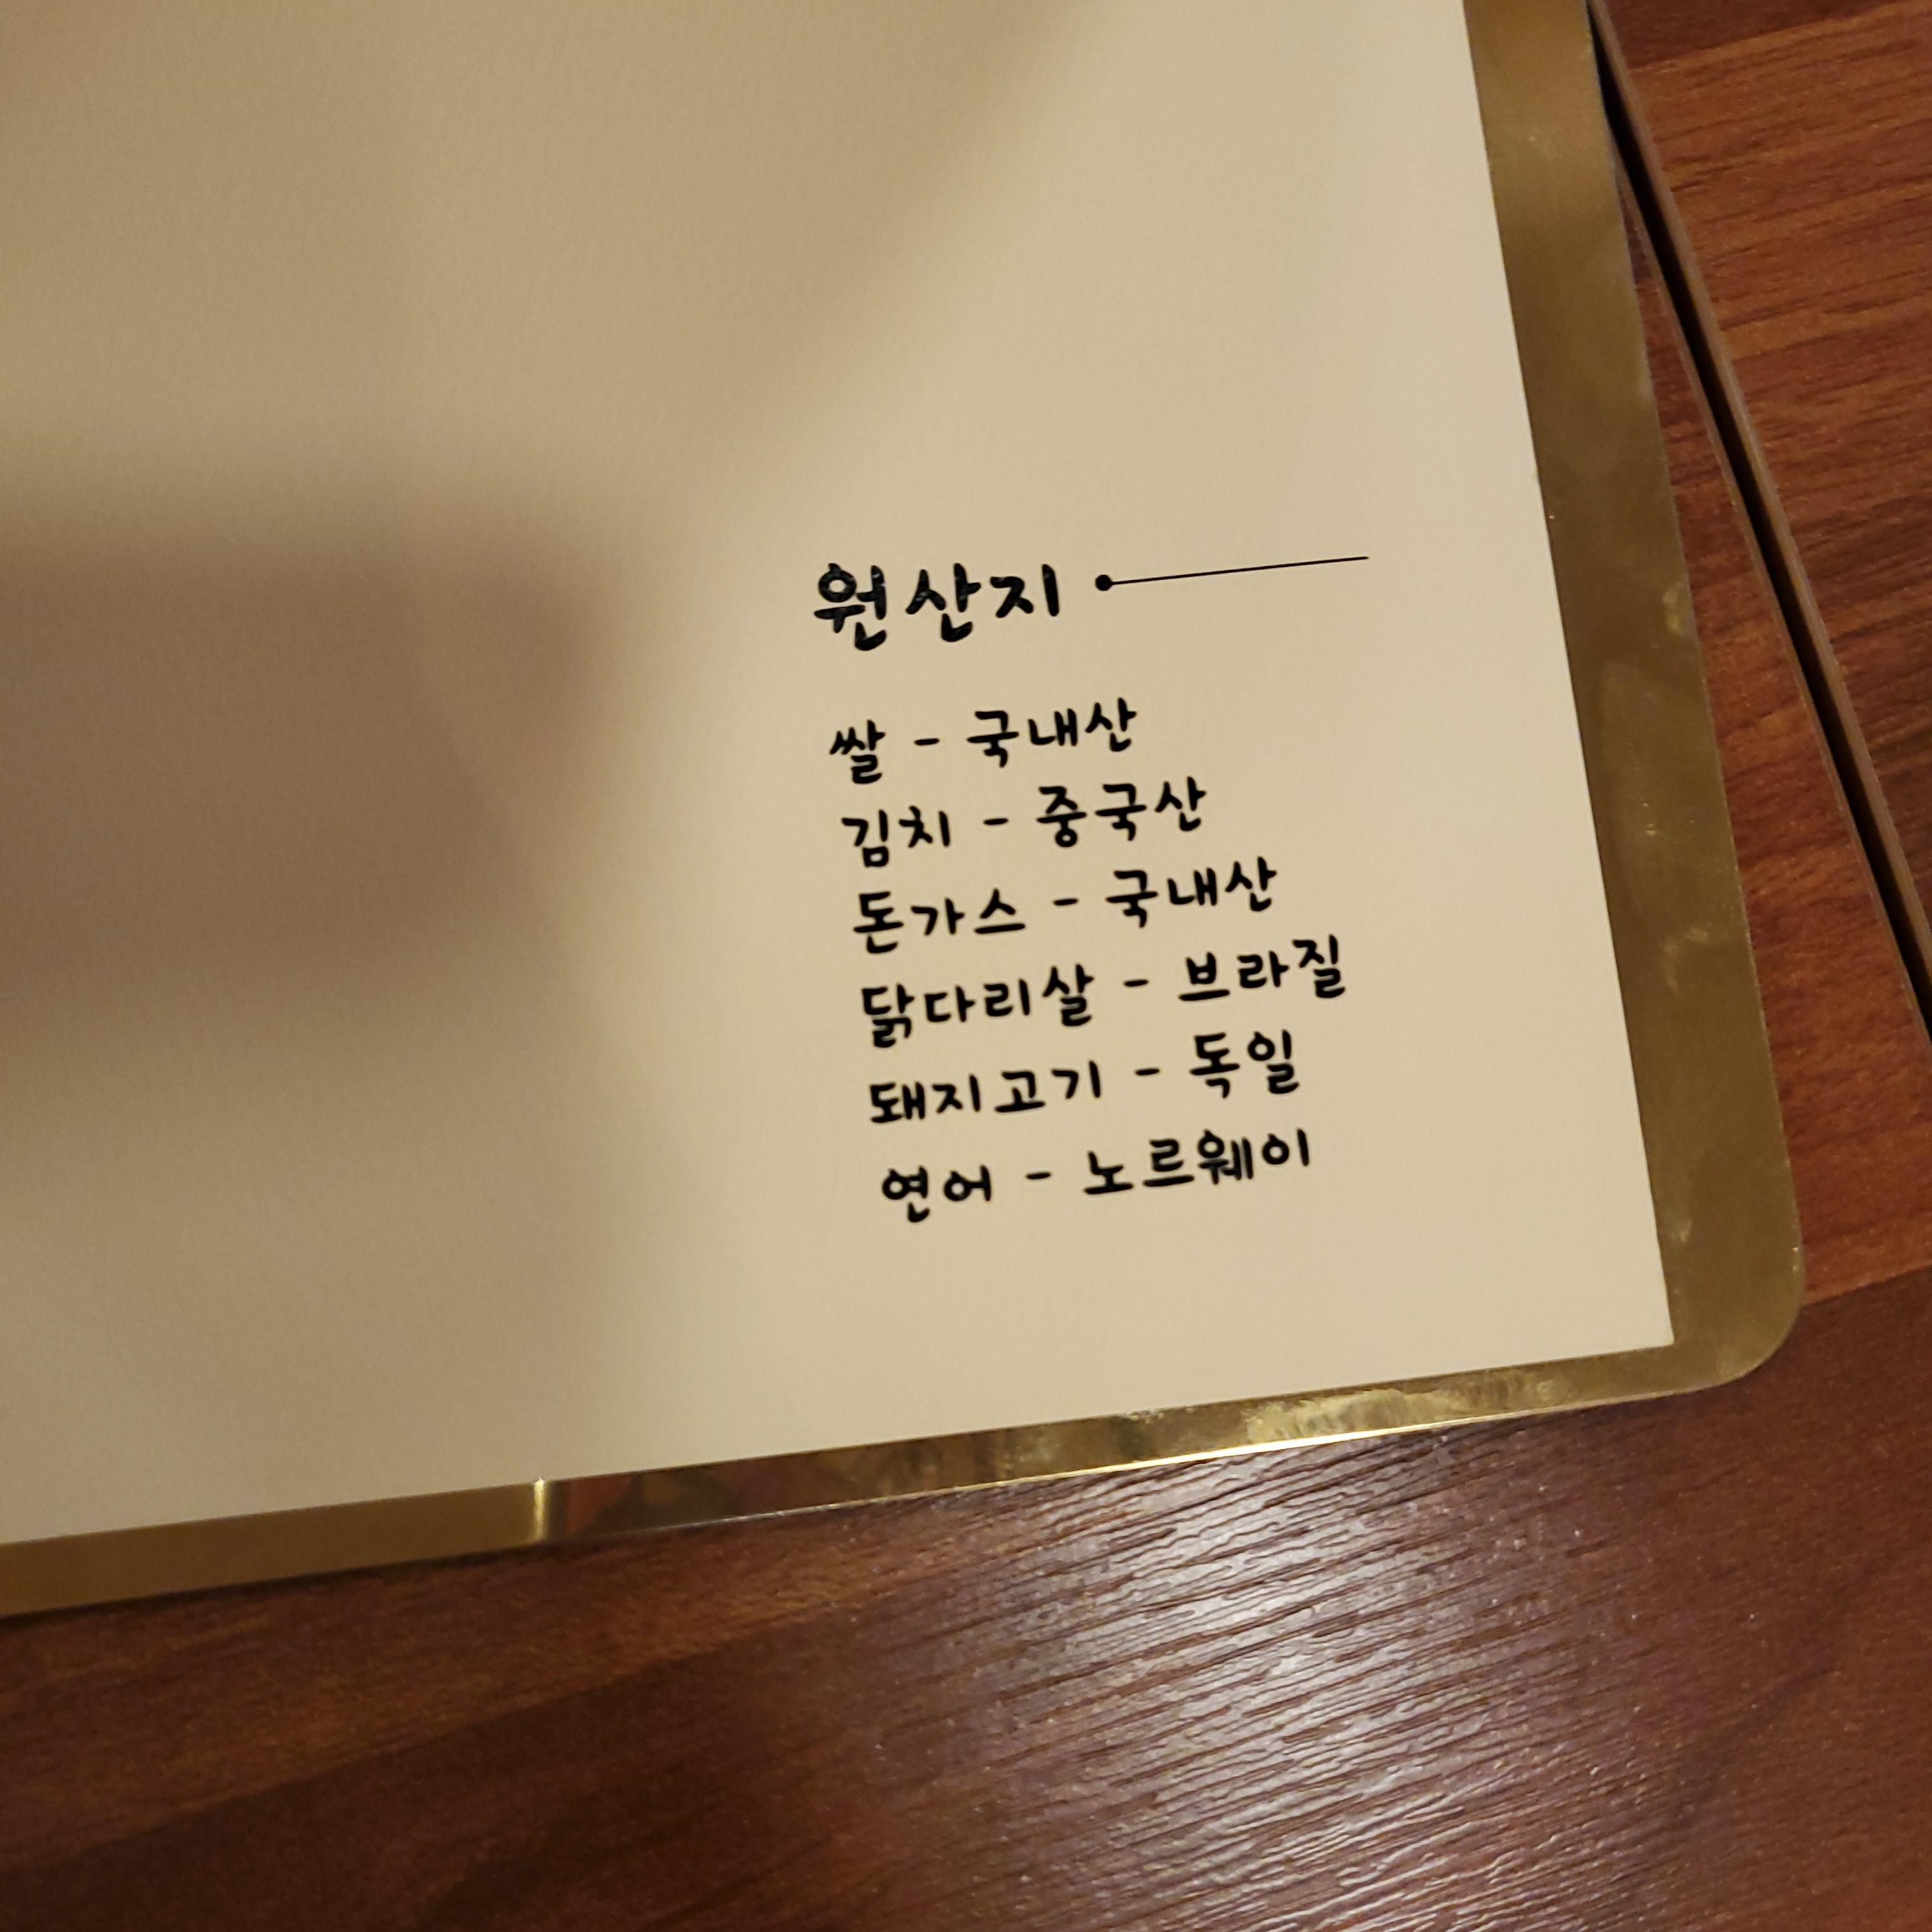 원산지
쌀 - 국내산
김치 - 중국산
돈가스 - 국내산
닭다리살 - 브라질
돼지고기 - 독일
연어 - 노르웨이